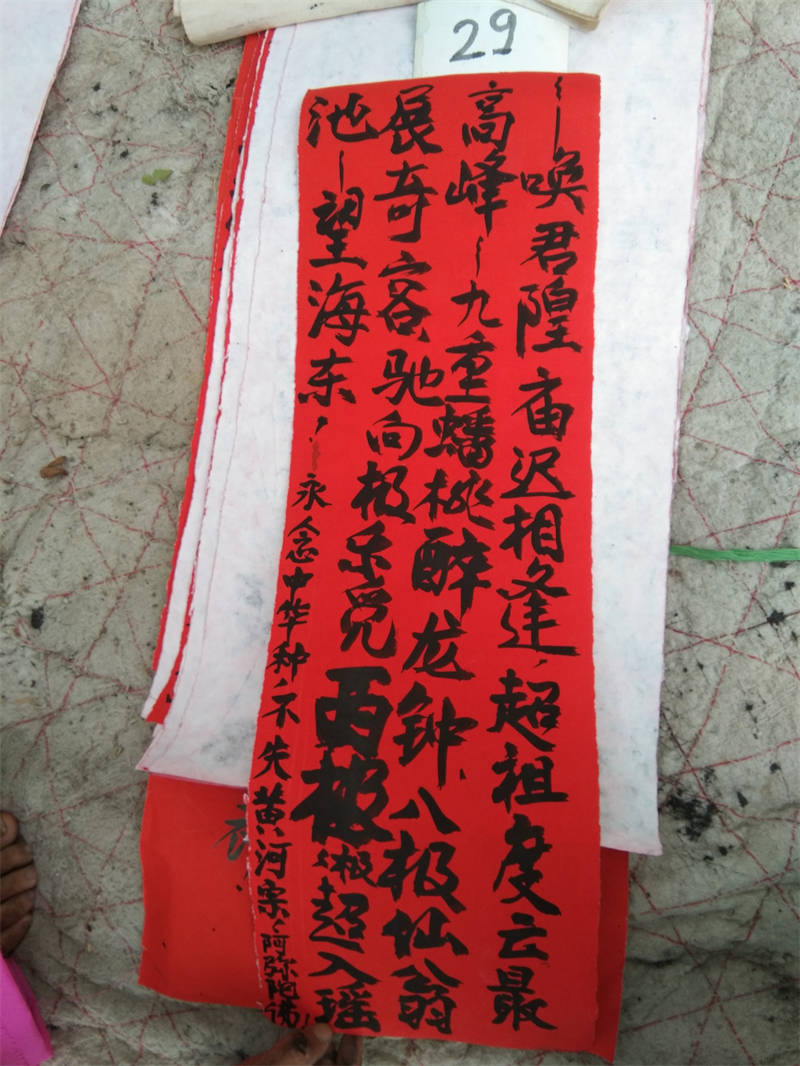 29
~~唤君隍庙迟相逢,超祖度云最
高峰~九重蟠桃醉龙钟,八极仙翁
展奇客,驰向极乐西极(极)超入瑶
池~望海东,
永念中华种,不失黄河宗,阿弥陀佛!